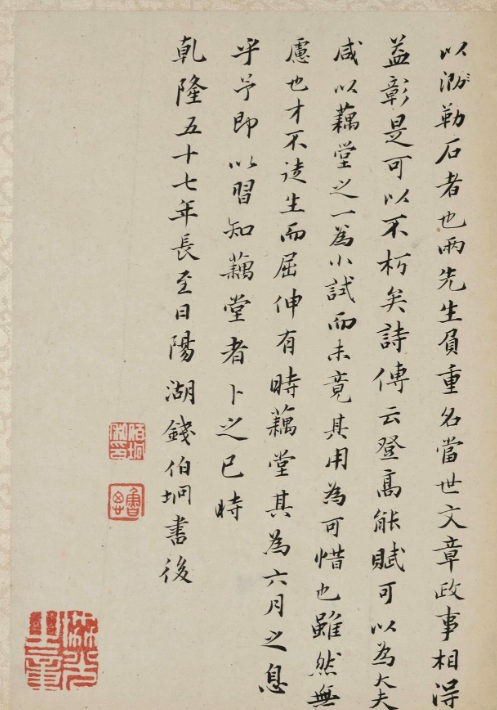 以泐勒石者也兩先生負重名當世文章政事相得
益彰是可以不朽矣詩傳云登高能賦可以為大夫
咸以藕堂之一為小試而未竟其用為可惜也雖然無
慮也才不徒生而屈伸有時藕堂其為六月之息
乎予即以習知藕堂者卜之已時
乾隆五十七年長至日陽湖錢伯坰書後
伯坰